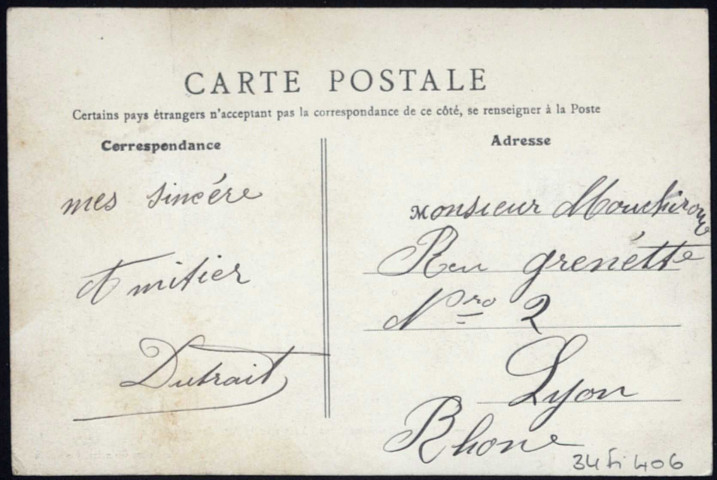 CARTE POSTALE
Certains pays étrangers n'acceptant pas la correspondance de ce côté, se renseigner à la Poste
Correspondance
mes sincére
Amitier
Dutrait
Adresse
Monsieur
Reu grenétte
Nro 2
Lyon
Rhone
34 fi 406